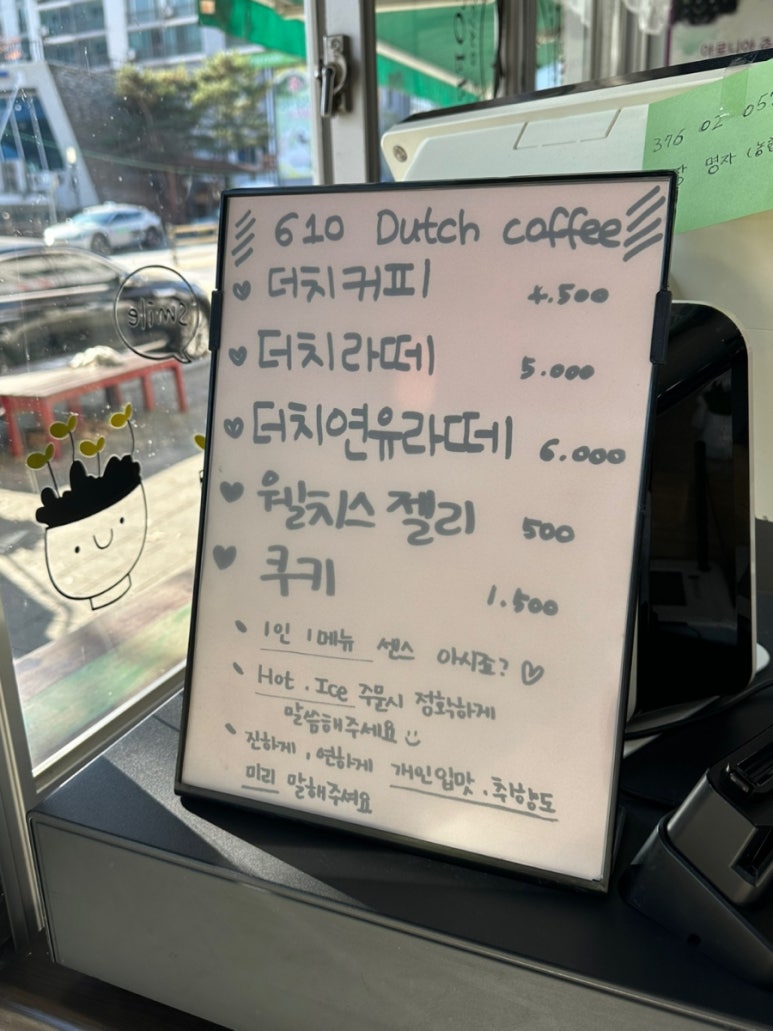 610 Dutch coffee
더치커피 4.500
더치라떼 5.000
더치연유라떼 6.000
웰치스 젤리 500
쿠키 1.500
1인 1메뉴 센스 아시죠?
Hot . Ice 주문시 정확하게
말씀해주세요
진하게, 연하게 개인입맛.취향도
미리 말해주셔요
smile
376 02 05
명자